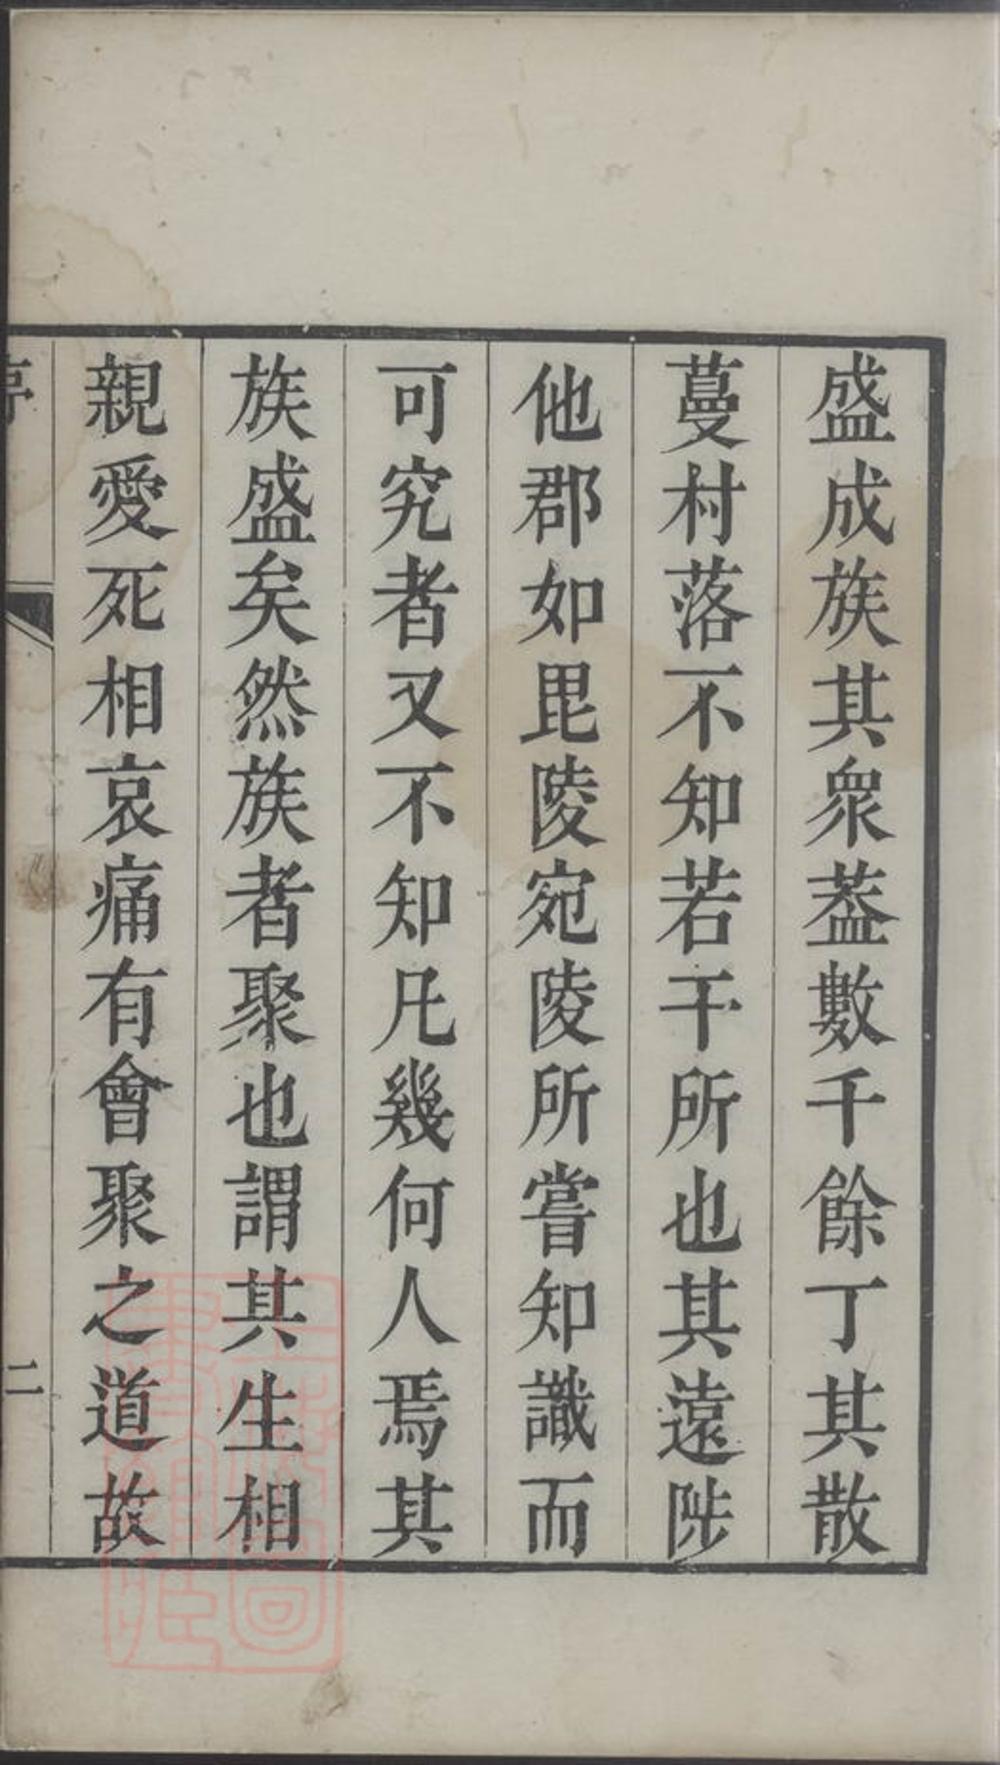 盛成族其衆葢數千餘丁其散
蔓村落不知若干所也其遠陟
他郡如毘陵宛陵所嘗知識而
可究者又不知凡幾何人焉其
族盛矣然族者聚也謂其生相
親愛死相哀痛有會聚之道故
二